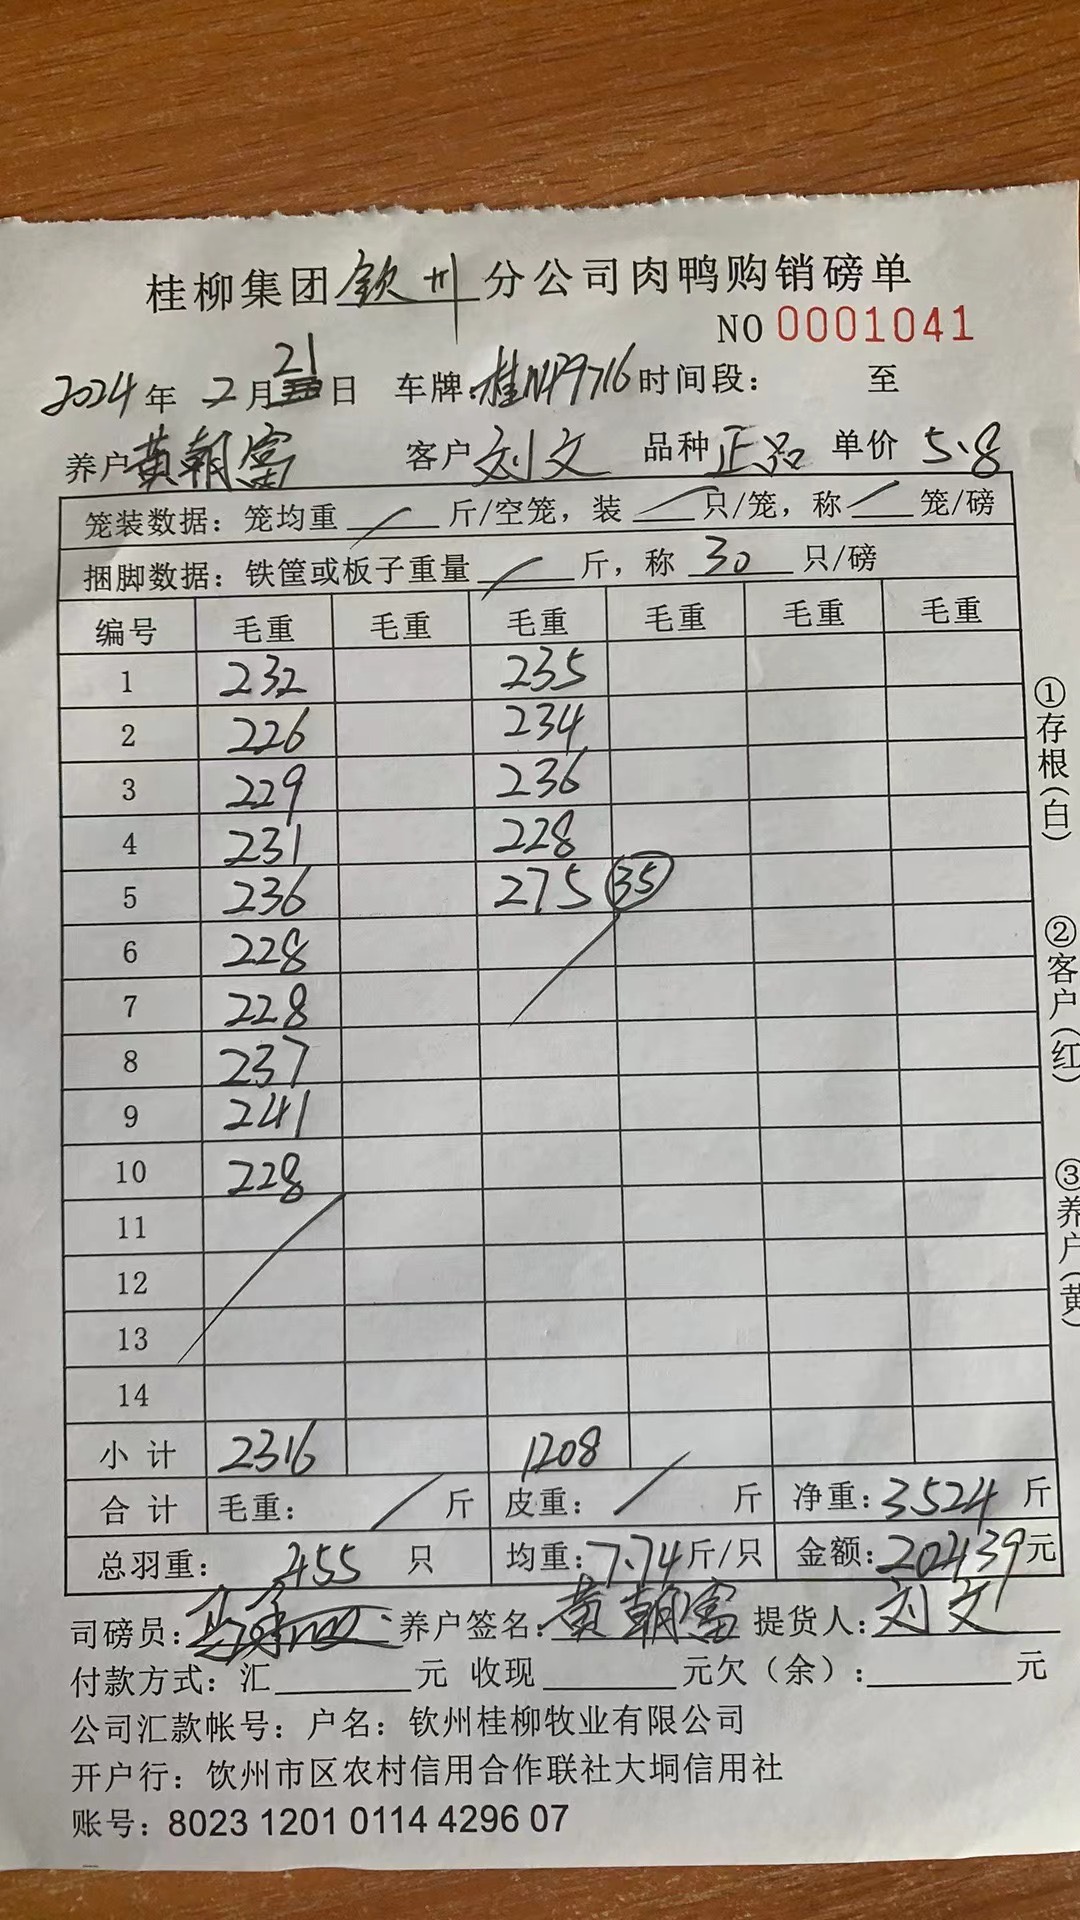 桂柳集团钦州分公司肉鸭购销磅单
NO 0001041
2024年2月21日 车牌:桂N49716 时间段: 至
养户黄朝富 客户刘文 品种正品 单价5.8
笼装数据：笼均重 / 斤/空笼，装 / 只/笼，称 / 笼/磅
捆脚数据：铁筐或板子重量 / 斤，称 30 只/磅
编号 毛重 毛重 毛重 毛重 毛重 毛重
1 232 235
2 226 234
3 229 236
4 231 228
5 236 275 35
6 228
7 228
8 237
9 241
10 228
11
12
13
14
小计 2316 1208
合计 毛重： / 斤 皮重： / 斤 净重：3524 斤
总羽重： 455 只 均重：7.74斤/只 金额：20439元
司磅员： 养户签名：黄朝富 提货人：刘文
付款方式：汇 元 收现 元欠（余）： 元
公司汇款帐号：户名：钦州桂柳牧业有限公司
开户行：钦州市区农村信用合作联社大垌信用社
账号：8023 1201 0114 4296 07
①存根(白)
②客户(红)
③养户(黄)